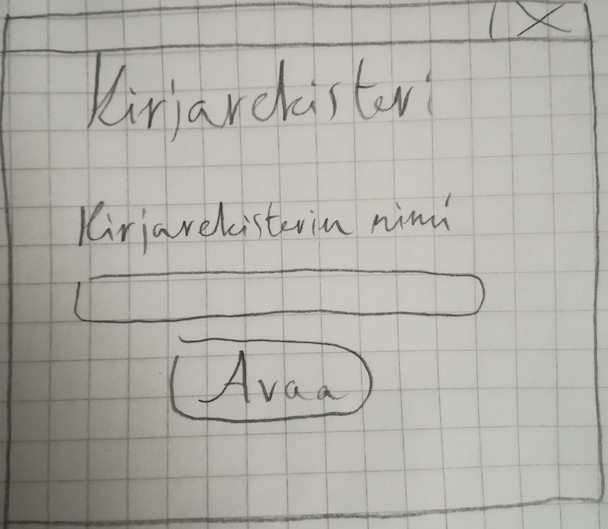 X
Kirjarekisteri
Kirjarekisterin nimi
Avaa